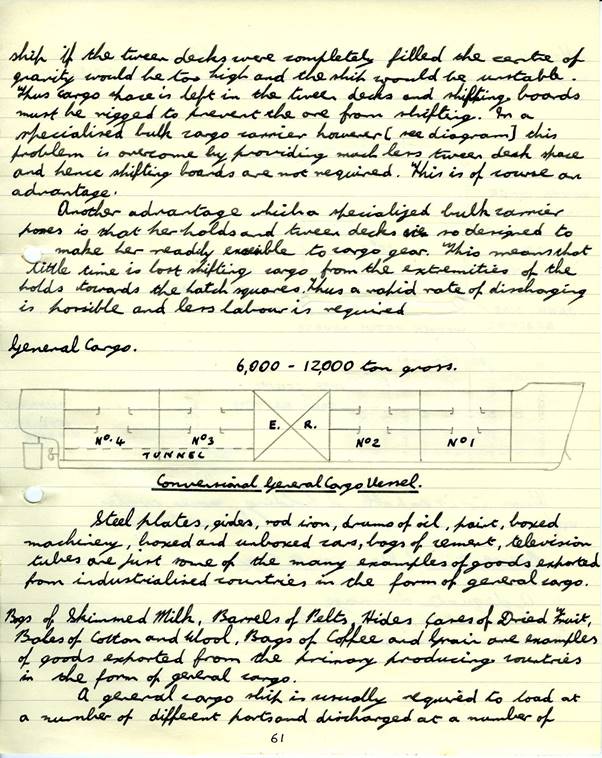 ship if the tween decks were completely filled the centre of
gravity would be too high and the ship would be unstable.
Thus cargo space is left in the tween decks and shifting boards
must be rigged to prevent the ore from shifting. In a
specialised bulk cargo carrier however [see diagram] this
problem is overcome by providing much less tween deck space
and hence shifting boards are not required. This is of course an
advantage.
Another advantage which a specialized bulk carrier
poses is that her holds and tween decks are so designed to
make her readily to cargo gear. This means that
little time is lost shifting cargo from the extremities of the
holds towards the hatch squares. Thus a rapid rate of discharging
is possible and less labour is required
General Cargo.
6,000 - 12,000 ton gross.
No. 4 No 3 E. R. No 2 No 1
TUNNEL
Conventional General Cargo Vessel.
Steel plates, rod iron, drums of oil, paint, boxed
machinery, boxed and unboxed cars, bags of cement, television
tubes are just some of the many examples of goods exported
from industrialised countries in the form of general cargo.
Bags of Skimmed Milk, Barrels of Pelts, Hides Cases of Dried Fruit,
Bales of Cotton and Wool, Bags of Coffee and Grain are examples
of goods exported from the primary producing countries
in the form of general cargo.
A general cargo ship is usually required to load at
a number of different ports and discharged at a number of
61